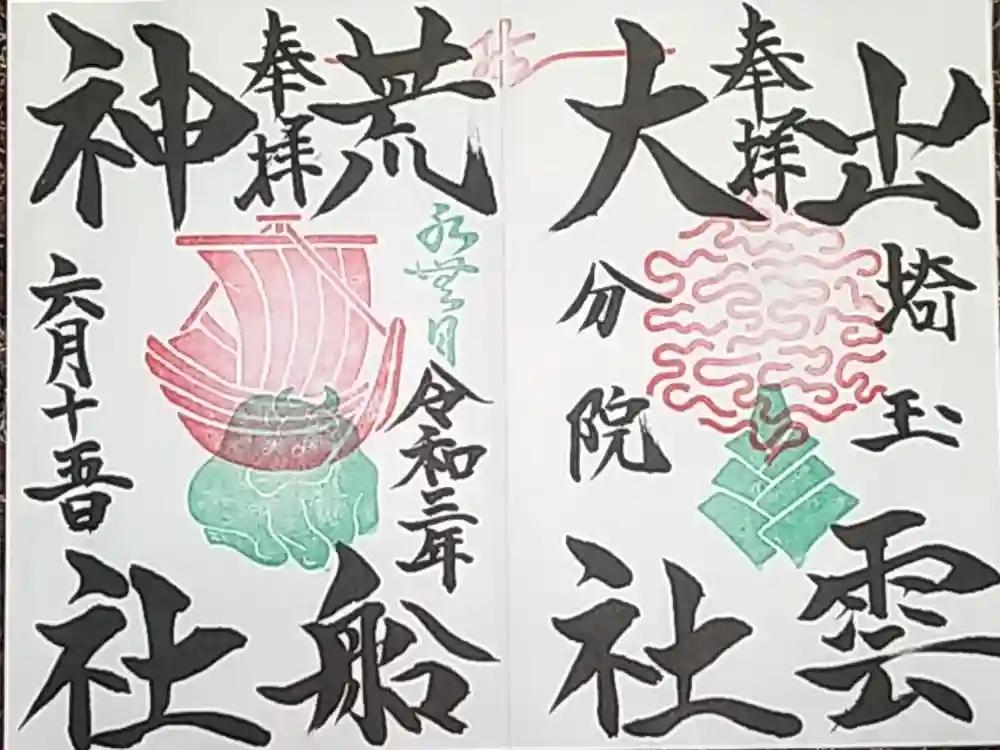 奉拝
出雲
大社
埼玉
分院
奉拝
荒船
神社
水無月
令和三年
六月十五日